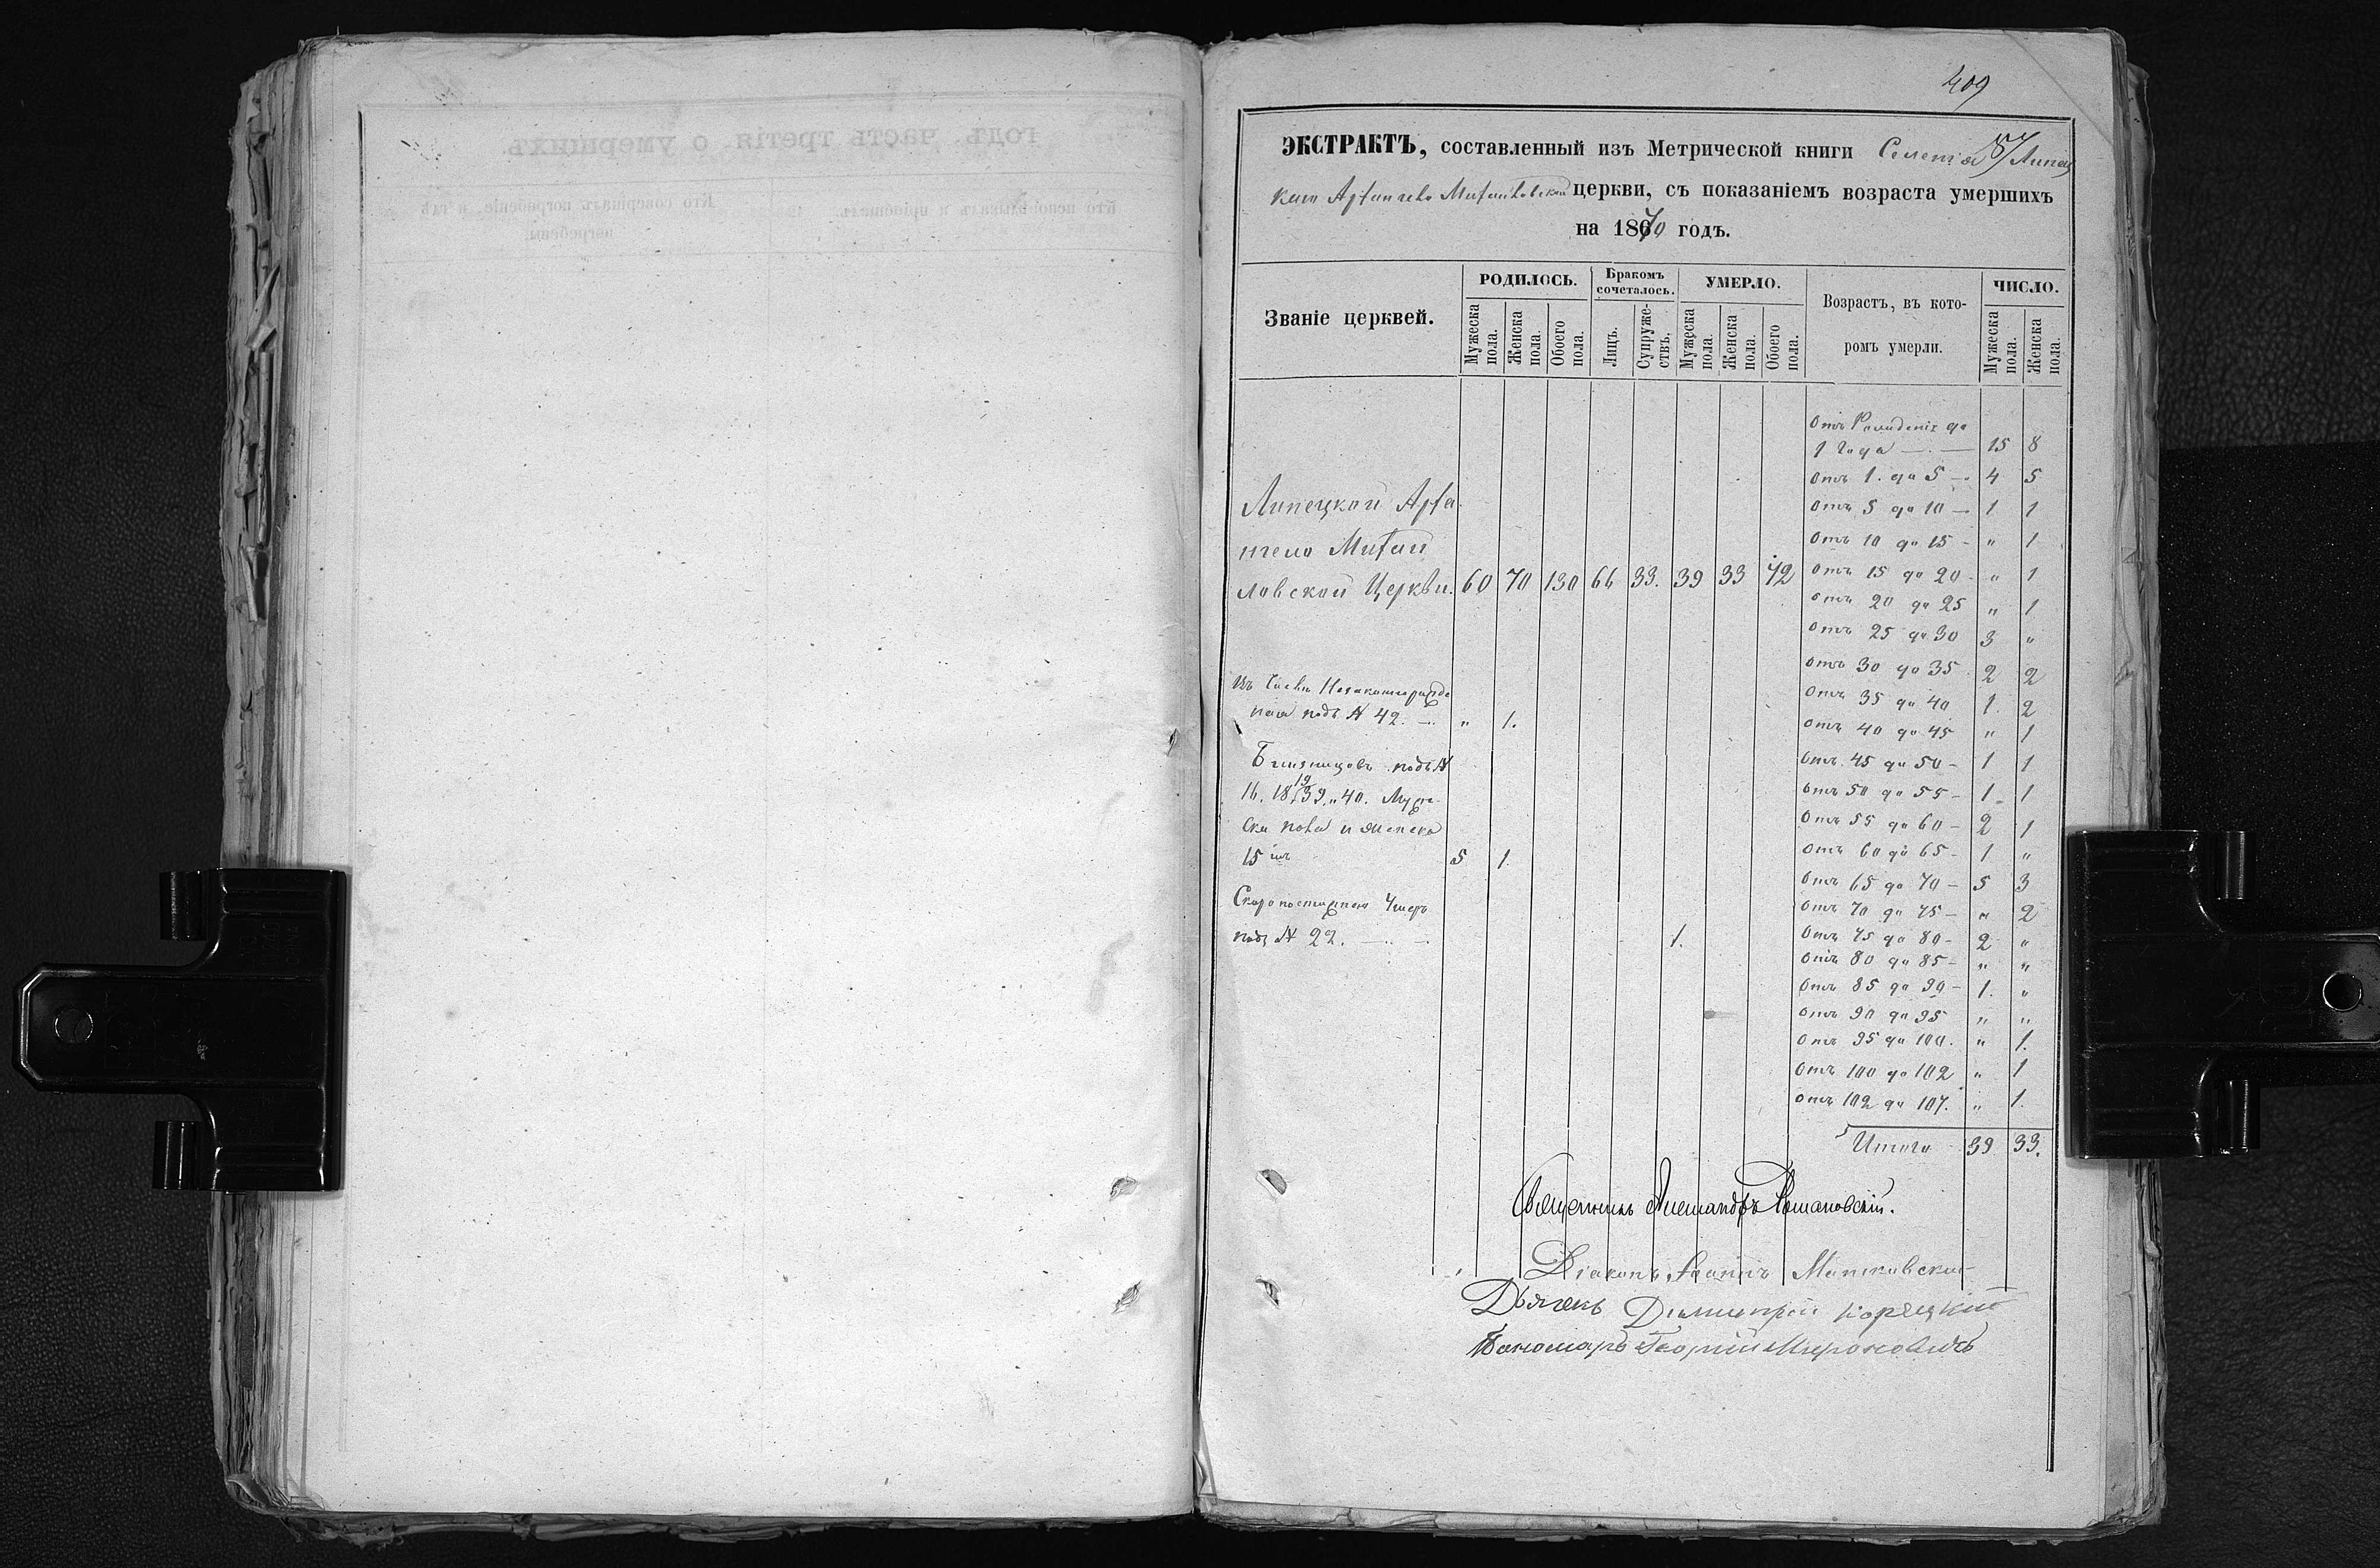 409
ЭКСТРАКТЪ, составленный изъ Метрической книги Селенія Липец
кой Архангело Михайловской церкви, съ показаніемъ возраста умершихъ
на 1870 годъ.
Званіе церквей.
РОДИЛОСЬ.
Мужеска пола.
Женска пола.
Обоего пола.
Бракомъ сочеталось.
Лицъ.
Супружествъ.
УМЕРЛО.
Мужеска пола.
Женска пола.
Обоего пола.
Возрастъ, въ кото-
ромъ умерли.
ЧИСЛО.
Мужеска пола.
Женска пола.
Липецкой Арха
нгело Михай
ловской Церкви. 60 70 130 66 33. 39 33 72
Въ числѣ
подъ N 42. — „ 1.
Близнецовъ подъ N
16. 18 19 39. „ 40. Муже
ска пола и женска
15 5 1.
Скоропостижно Умеръ
подъ N 22. — 1.
Отъ Рожденія до
1 Года — 15 8
Отъ 1. до 5 — 4 5
Отъ 5 до 10 — 1 1
Отъ 10 до 15 - „ 1
Отъ 15 до 20 - „ 1
Отъ 20 до 25 „ 1
Отъ 25 до 30 3 „
Отъ 30 до 35 2 2
Отъ 35 до 40 1. 2
Отъ 40 до 45 „ 1
Отъ 45 до 50 - 1 1
Отъ 50 до 55 - 1 1
Отъ 55 до 60 - 2 1
Отъ 60 до 65 - 1 „
Отъ 65 до 70 - 5 3
Отъ 70 до 75 - „ 2
Отъ 75 до 80 - 2 „
Отъ 80 до 85 - „ „
Отъ 85 до 90 - 1. „
Отъ 90 до 95 „ „
Отъ 95 до 100. „ 1.
Отъ 100 до 102 „ 1
Отъ 102 до 107. „ 1.
Итого 39 33.
Священникъ Александръ Романовскій.
Діаконъ Іоаннъ
Дьячекъ Димитрій Корецкій
Пономарь Георгій Мироновичъ